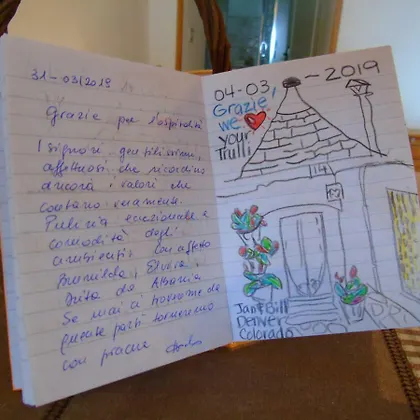 31-03/2019
Grazie per l'ospitalità
I signori gentilissimi,
affettuosi che ricordino
ancora i valori che
contano veramente.
Pulizia eccezionale e
comodità degli
ambienti. Con affetto
Brunilda,
Drita da Albania
Se mai ci troviamo da
queste parti torneremo
con piacere
04-03-2019
Grazie,
we
your
Trulli
114
Jan & Bill
Denver
Colorado